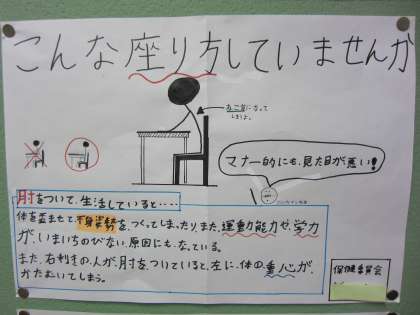 こんな座り方していませんか
ねこ背になって
しまうよ。
マナー的にも、見た目が悪い!
肘をついて、生活していると‥‥
体を歪ませて、不良姿勢をつくってしまったり、また、運動能力や、学力
が、いまいちのびない、原因にも、なっている。
また、右利きの人が、肘をついていると、左に、体の重心が、
かたむいてしまう。
保健委員会